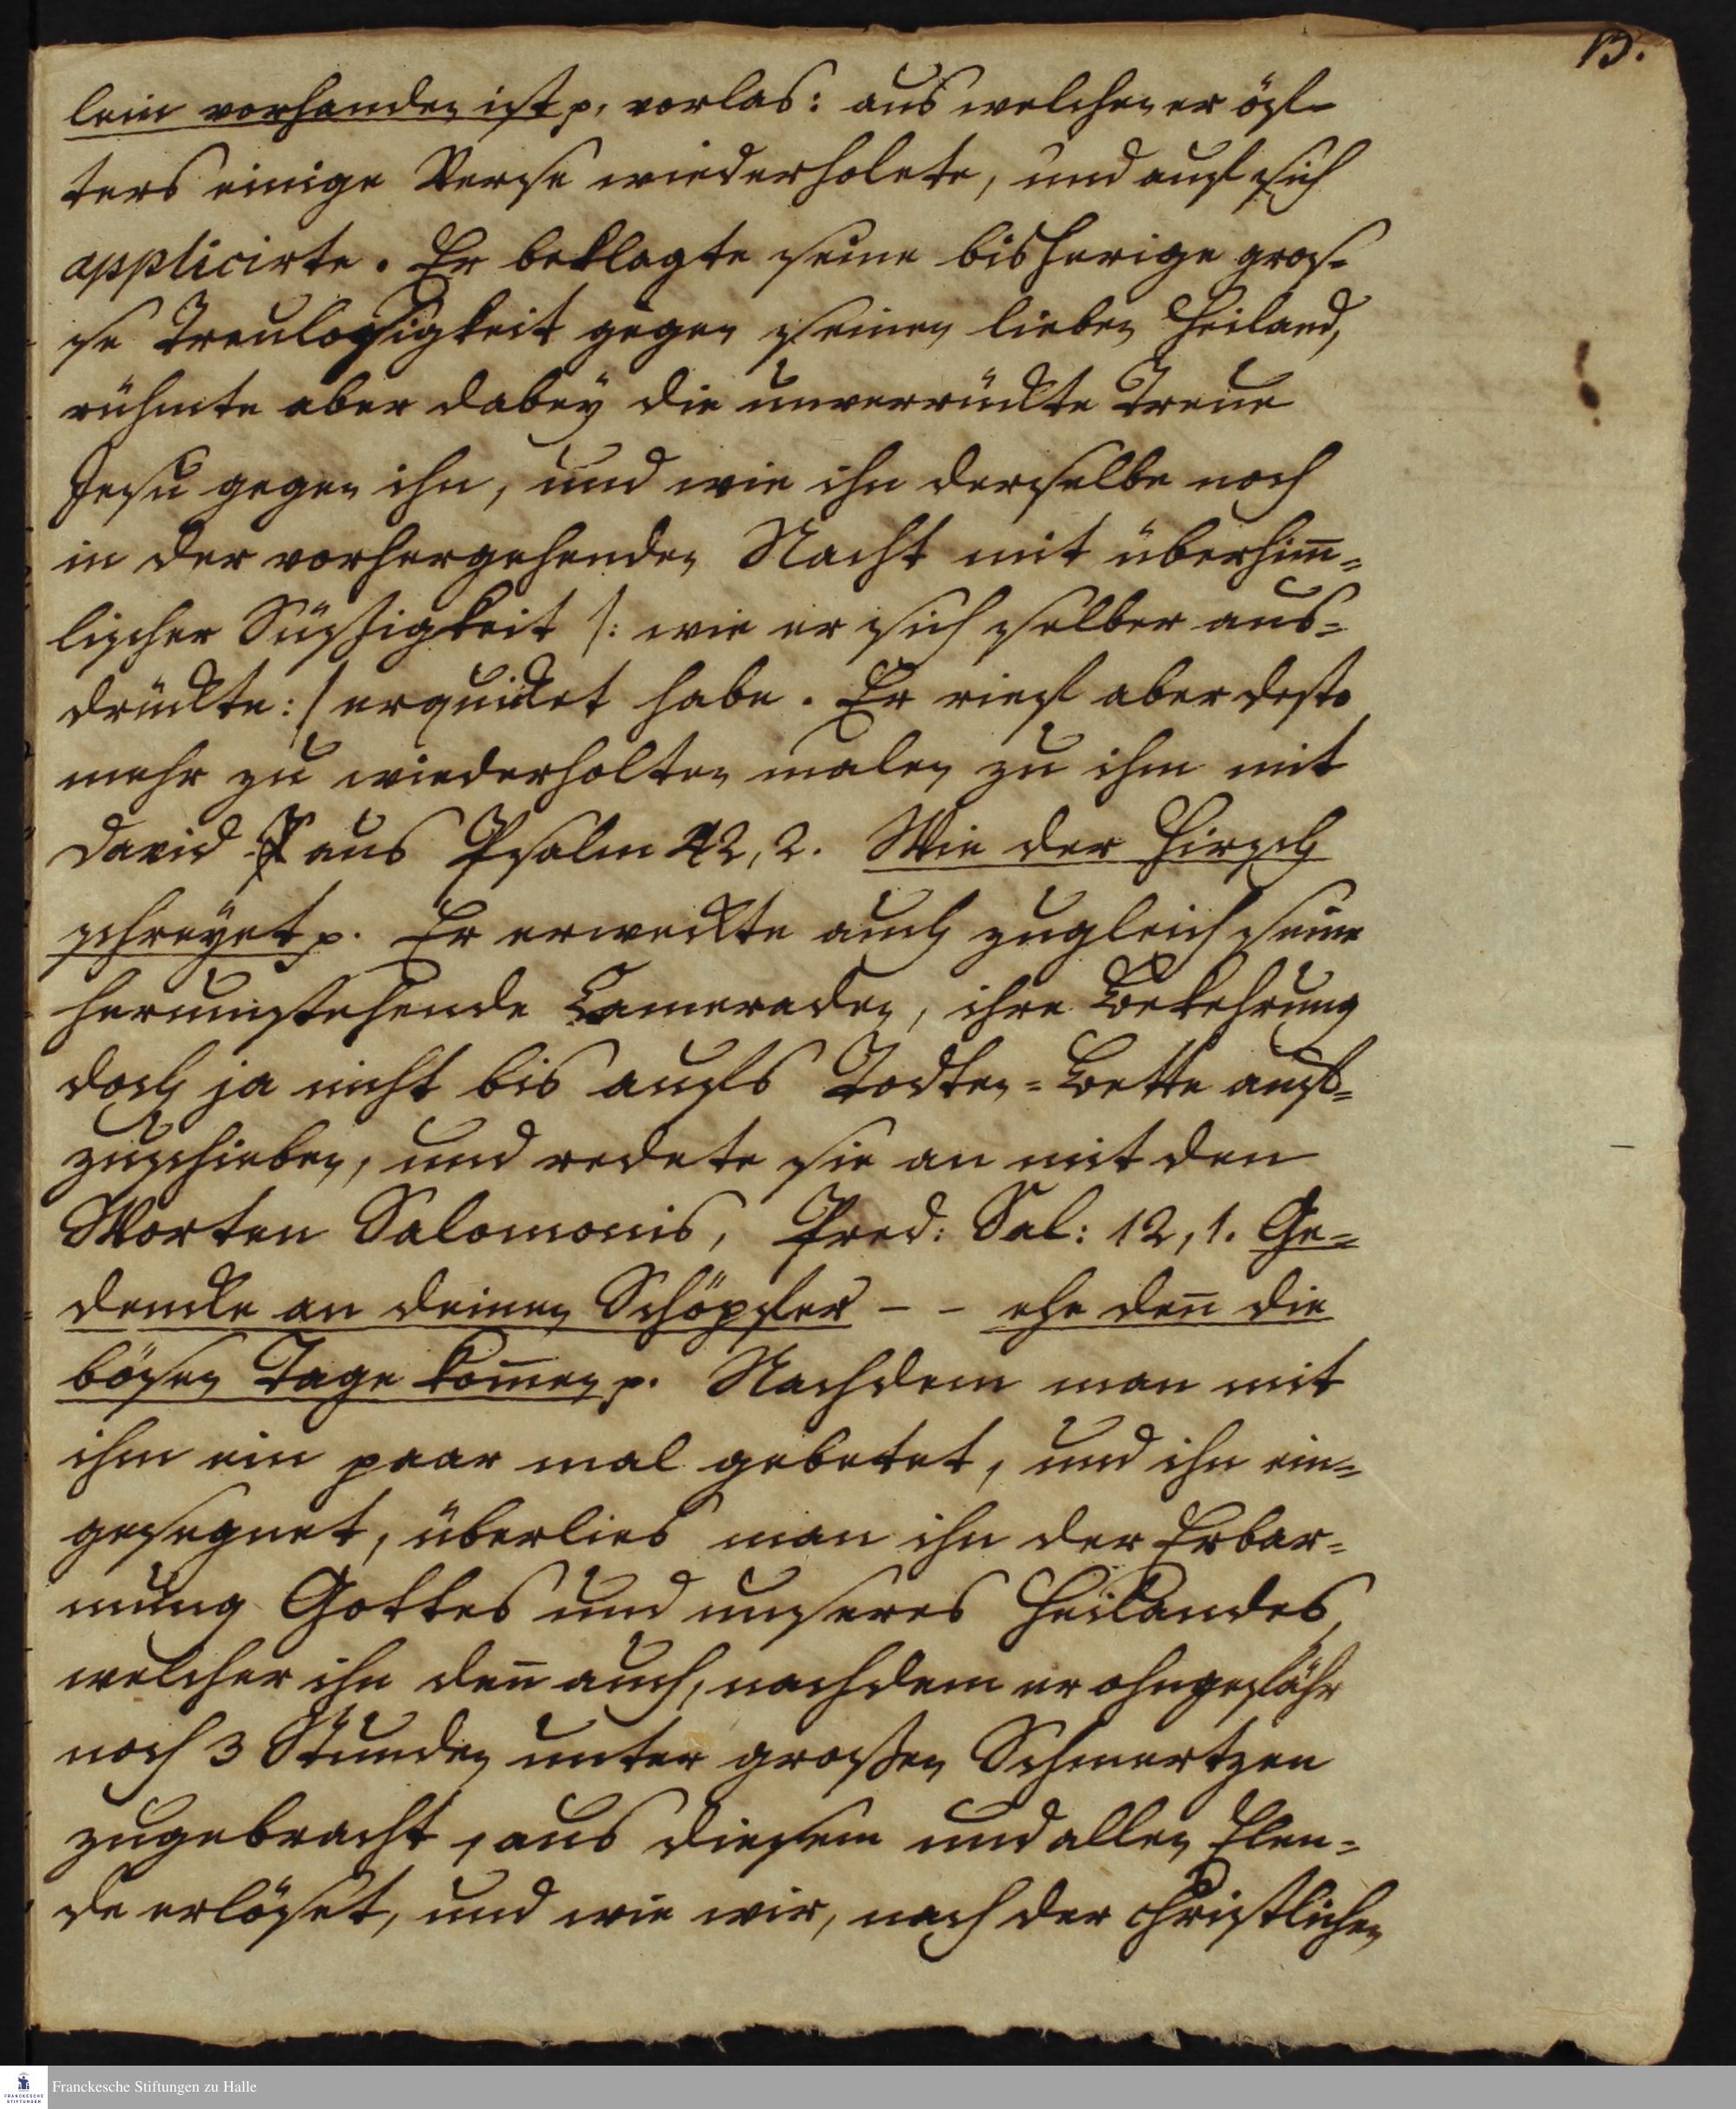 13.
lein vorhanden ist p. vorlas: aus welchen er öf-
ters einige Verse wiederholete, und auf sich
applicirte. Er beklagte seine bisherige gros-
se Treulosigkeit gegen seinen lieben Heiland,
rühmte aber dabeÿ die unverrückte Treue
Jesu gegen ihn, und wie ihn derselbe noch
in der vorhergehenden Nacht mit überhim̅=
lischer Süssigkeit /: wie er sich selber aus=
drückte: / erquicket habe. Er rief aber desto
mehr zu wiederholten malen zu ihm mit
David aus Psalm 42, 2. Wie der Hirsch
schreÿet p. Er erweckte auch zugleich seine
herumstehende Cameraden, ihre Bekehrung
doch ja nicht bis aufs Todten=Bette auf=
zuschieben, und redete sie an mit den
Worten Salomonis, Pred: Sal: 12, 1. Ge=
dencke an deinen Schöpfer - - ehe den̅ die
bösen Tage kom̅en p. Nachdem man mit
ihm ein paar mal gebetet, und ihn ein=
gesegnet, überlies man ihn der Erbar=
mung Gottes und unseres Heilandes,
welcher ihn den̅ auch, nachdem er ohngefähr
noch 3 Stunden unter großen Schmertzen
zugebracht, aus diesem und allen Elen=
de erlöset, und wie wir, nach der christlichen
Franckesche Stiftungen zu Halle
FRANCKESCHE
STIFTUNGEN